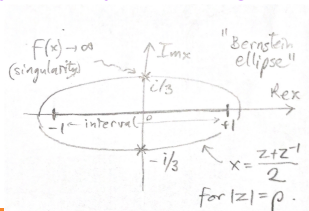 f(x)→∞
(singularity)
Im x
"Bernstein
ellipse"
i/3
Re x
-1
interval
0
+1
-i/3
x = z+z⁻¹
2
for |z|=ρ.